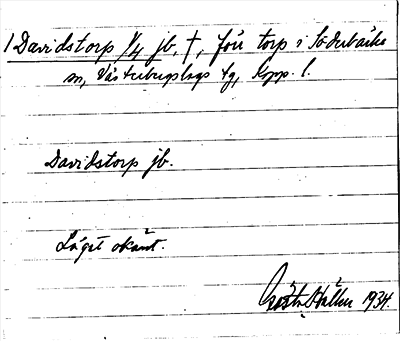 1 Davidstorp 1/4 jb, †, förr torp i Söderbärke
sn, Västerbergslags tg, Kopp. l.
Davidstorp jb.
Läget okänt.
1934.